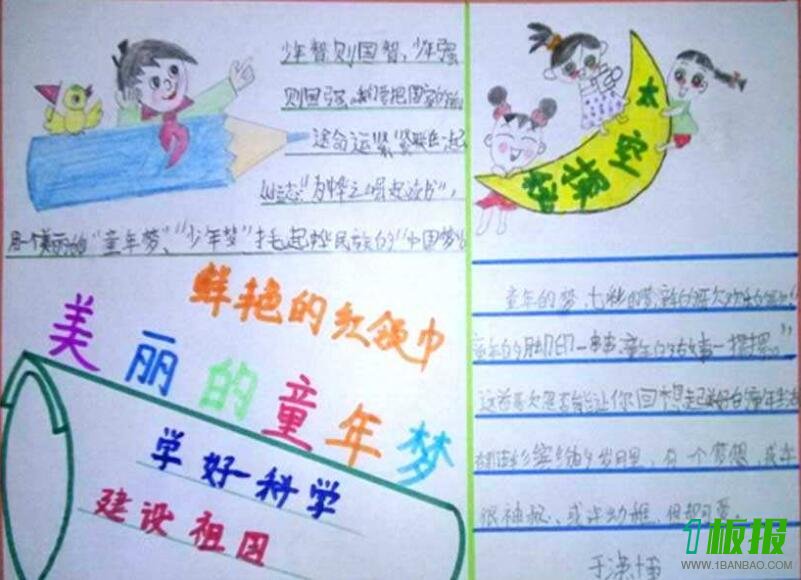 少年智则国智,少年强
则国强。我们要把国家的
命运紧紧联在一起
立志"为中华之崛起读书",
用一个个美丽的"童年梦"、"少年梦"托起中华民族的"中国梦"。
鲜艳的红领巾
美丽的童年梦
学好科学
建设祖国
太空探梦
童年的梦,七彩的梦;童年的歌欢乐的歌;
童年的脚印一串串,童年的故事一摞摞。"
这首歌是否能让你回想起美好的童年生活
的岁月里,有一个梦想,或许
很神秘、或许幼稚,但都可爱。
1板报
WWW.1BANBAO.COM